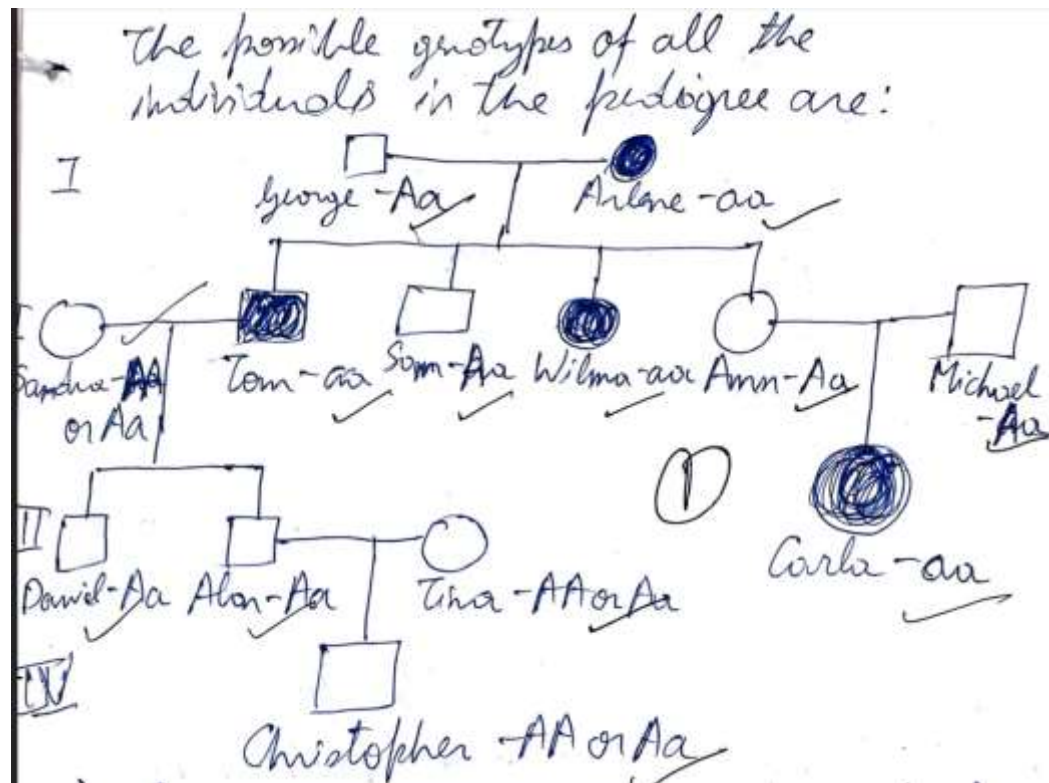 The possible genotypes of all the
individuals in the pedigree are:
I
George - Aa Arlene - aa
Sandra - AA
or Aa
Tom - aa Sam - Aa Wilma - aa Ann - Aa
Michael
- Aa
1
II
Daniel - Aa Alan - Aa Tina - AA or Aa
Carla - aa
IV
Christopher - AA or Aa